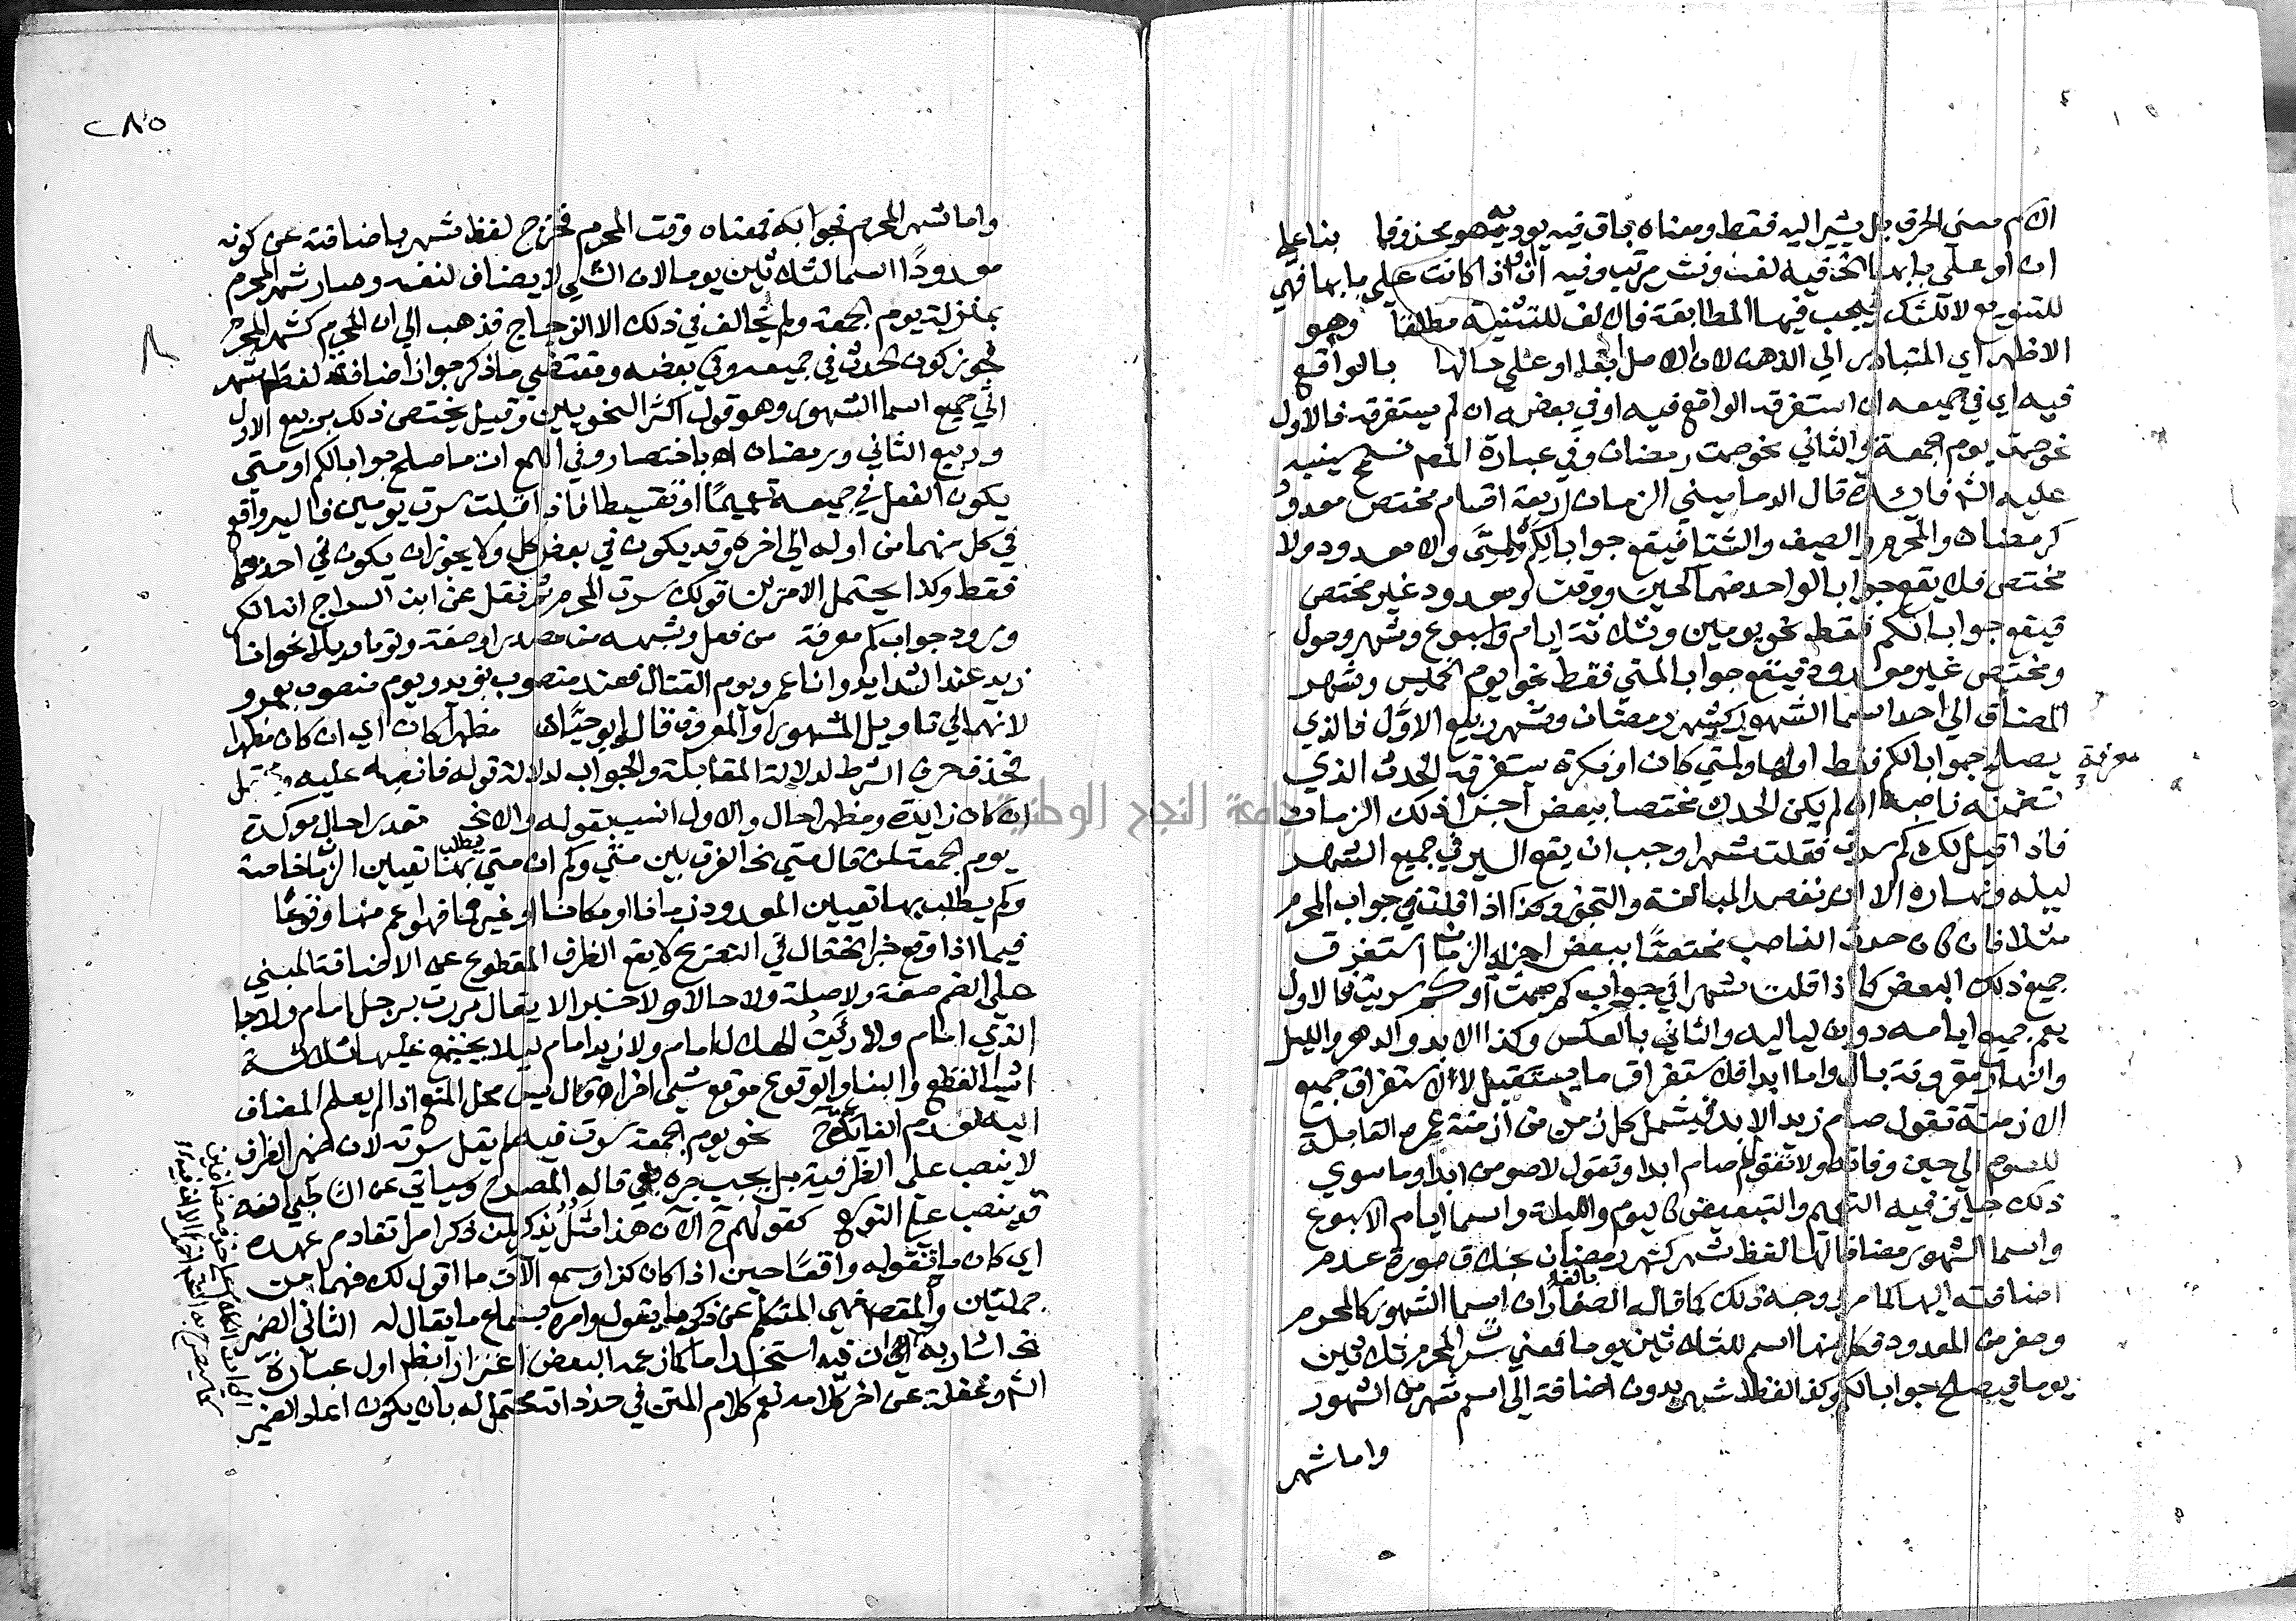 الاسم معنى الحرف بل يشير اليه فقط ومعناه باق فيه يوديه هو محذوفا بنا علي
ان او علي بابها الخ فيه لف ونشر مرتب وفيه ان او اذا كانت علي بابها فهي
للتنويع لا للشك فيجب فيها المطابقة فالالف للتثنية مطلقا وهو
الاظهر اي المتبادر الي الذهن لان الاصل بقا او علي حالها بالواقع
فيه اي في جميعه ان استغرقه الواقع فيه او في بعضه ان لم يستغرقه فالاول
نحو صمت يوم الجمعة والثاني نحو صمت رمضان وفي عبارة المص تسمح ينبه
عليه الش فايدة قال الدماميني الزمان اربعة اقسام مختص معدود
كرمضان والمحرم والصيف والشتا فيقع جوابا لكم ولمتى ولا معدود ولا
مختص فلا يقع جوابا لواحد منهما كحين ووقت ومعدود غير مختص
فيقع جوابا لكم فقط نحو يومين وثلاثة ايام واسبوع وشهر وحول
ومختص غير معدود فيقع جوابا لمتي فقط نحو يوم الخميس وشهر
المضاف الي احد اسما الشهور كشهر رمضان وشهر ربيع الاول فالذي
يصلح جوابا لكم فقط اولها ولمتي كان او نكرة يستغرقه الحدث الذي
معرفة
تضمنه ناصبه ان لم يكن الحدث مختصا ببعض اجزا ذلك الزمان
فاذا قيل لك كم سرت فقلت شهرا وجب ان يقع السير في جميع الشهر
ليله ونهاره الا ان نقصد المبالغة والتجوز وكذا اذا قلت في جواب المحرم
مثلا فان كان حدث الناصب مختصا ببعض اجزاء الزمان استغرق
جميع ذلك البعض كما اذا قلت شهرا في جواب كم صمت او كم سريت فالاول
يعم جميع ايامه دون لياليه والثاني بالعكس وكذا الابد والدهر والليل
والنهار مقرونة بال واما ابدا فلاستغراق ما يستقبل لا لاستغراق جميع
الازمنة تقول صام زيد الابد فيشمل كل زمن من ازمنة عمره القابلة
للصوم الي حين وفاته ولا تقول صام ابدا وتقول لاصومن ابدا وما سوي
ذلك جايز فيه التعميم والتبعيض كاليوم والليلة واسما ايام الاسبوع
واسما الشهور مضافا اليها لفظ شهر كشهر رمضان بخلاف صورة عدم
اضافته اليها كما مر ووجه ذلك كما قاله الصفار ان اسما الشهور كالمحرم
وصفر من المعدود فكل منها اسم للثلاثين يوما فمعني سرت المحرم ثلاثين
يوما فيصلح جوابا لكم وكذا لفظ شهر بدون اضافة الي اسم شهر من الشهور
واما شهر
٢٨٥
واما شهر المحرم فجوابكم فمعناه وقت المحرم فخرج لفظ شهر باضافته عن كونه
معدودا اسما لثلاثين يوما لان الشي لا يضاف لنفسه وصار شهر المحرم
بمنزلة يوم الجمعة ولم يخالف في ذلك الا الزجاج فذهب الي ان المحرم كشهر المحرم
فجوز كون الحدث في جميعه وفي بعضه ومقتضي ما ذكر جواز اضافة لفظ شهر
الي جميع اسما الشهور وهو قول اكثر النحويين وقيل يختص ذلك بربيع الاول
وربيع الثاني ورمضان اه باختصار وفي الهمع ان ما صلح جوابا لكم او متي
يكون الفعل في جميعه تعميما او تقسيطا فاذا قلت سرت يومين فالسير واقع
في كل منهما من اوله الي اخره وقد يكون في بعض كل ولا يجوز ان يكون في احدهما
فقط وكذا يحتمل الامرين قولك سرت المحرم ثم نقل عن ابن السراج انه انكر
ورود جواب كم معرفة من فعل وشبهه من مصدر او صفة ولو تاويلا نحو انا
زيد عند الشدايد وانا عمرو يوم القتال فعند منصوب بزيد ويوم منصوب بعمرو
لانهما في تاويل المشهور او المعروف قاله ابو حيان مظهرا كان اي ان كان مظهرا
فحذف حرف الشرط لدلالة المقابلة والجواب لدلالة قوله فانصبه عليه ويحتمل
ان كان زايدة ومظهرا حال والاول انسب بقوله والا نحو مقدرا حال موكدة
يوم الجمعة لمن قال متي نحو الفرق بين متي وكم ان متي يطلب بها تعيين الزمان خاصة
وكم يطلب بها تعيين المعدود زمانا او مكانا او غيرهما فهو اعم منها وقوعا
فيما اذا وقع خبرا نحو قال في التصريح لا يقع الظرف المقطوع عن الاضافة المبني
علي الضم صفة ولا صلة ولا حالا ولا خبرا لا يقال مررت برجل امام ولا جا
الذي امام ولا رئيت الهلال امام ولا زيد امام ليلا يجتمع عليها ثلاثة
اشيا القطع والبنا والوقوع موقع شي اخر اه وقال يس محل المنع اذا لم يعلم المضاف
اليه لعدم الفايدة ح نحو يوم الجمعة سرت فيه لم يقل سرته لان ضمير الظرف
لا ينصب علي الظرفية بل يجب جره بفي قاله المصرح وسياتي عن الشاطبي انه
قد ينصب علي التوسع كقولهم ح الآن هذا مثل يذكر لمن ذكر امرا تقادم عهده
اي كان ما تقوله واقعا حين اذ كان كذا واسمع الآن ما اقول لك فهما من
جملتين والمقصود نهي المتكلم عن ذكر ما يقول وامره بسماع ما يقال له الثاني الضمير
نحو اشار به الي ان فيه استخداما كما زعمه البعض اغترارا بظاهر اول عبارة
الش وغفلة عن اخر كلامه نعم كلام المتن في حد ذاته محتمل له بان يكون اعاد الضمير
جامعة النجاح الوطنية